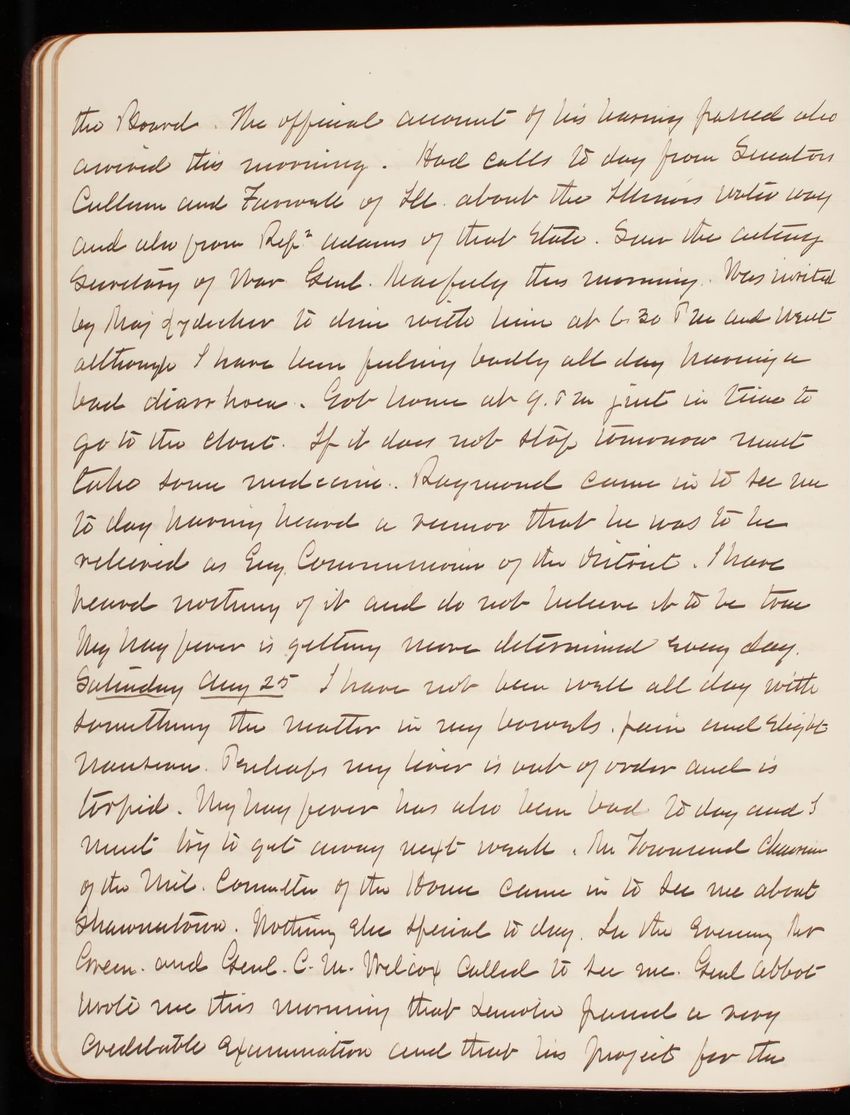 the Board. The official account of his having passed also
arrived this morning. Had calls to day from Senators
Cullum and Farwell of Ill. about the Illinois water way
and also from Rep. Adams of that State. Saw the acting
Secretary of War Genl. Macfeely this morning. Was invited
by Maj Lydecker to dine with him at 6.30 P m and went
although I have been feeling badly all day having a
bad diarrhoea. Got home at 9. P m just in time to
go to the closet. If it does not stop tomorrow must
take some medecine. Raymond came in to see me
to day having heard a rumor that he was to be
relieved as Eng. Commissioner of the District. I have
heard nothing of it and do not believe it to be true
My hay fever is getting more determined every day.
Saturday Aug 25 I have not been well all day with
something the matter in my bowels. pain and slight
nausea. Perhaps my liver is out of order and is
torpid. My hay fever has also been bad to day and I
must try to get away next week. Mr Townsend Chairman
of the Mil. Committee of the House came in to see me about
Shawneetown. Nothing else special to day. In the evening Mr
Green. and Genl. C. M. Wilcox called to see me. Genl Abbot
wrote me this morning that passed a very
creditable examination and that his project for the